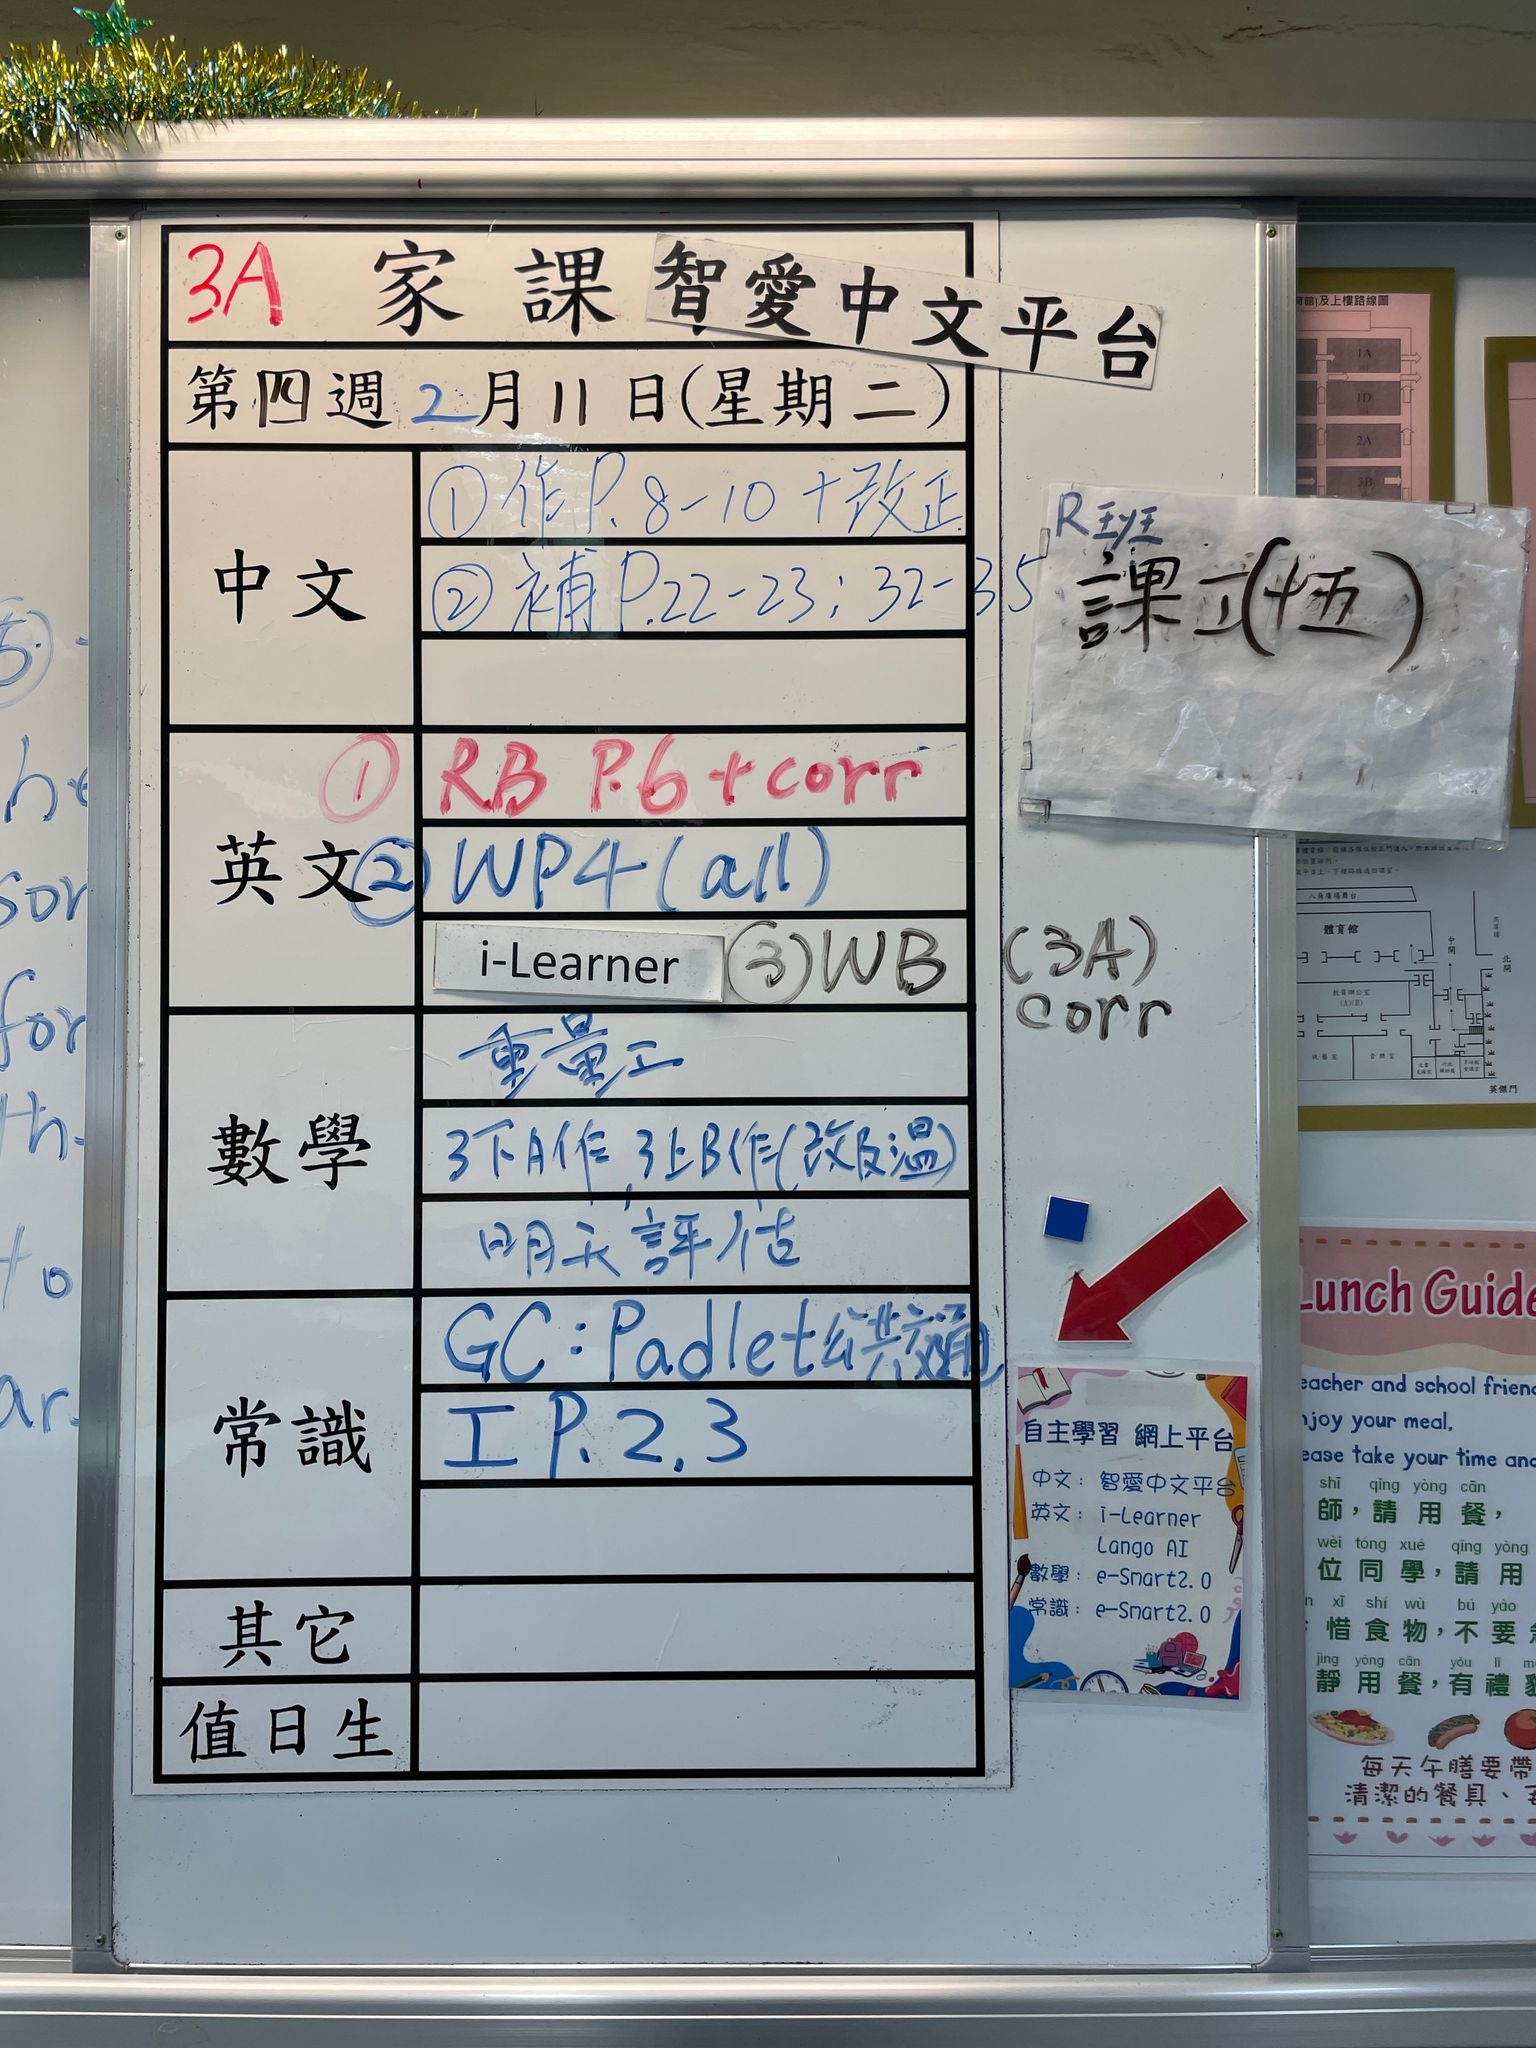 3A 家課 智愛中文平台
第四週 2月11日(星期二)
中文
① 作P.8-10+改正
② 補P.22-23; 32-35
英文
① RB P.6+corr
② WP4(all)
i-Learner ③WB (3A)
corr
數學
重量工
3下A作, 3上B作(改及溫)
明天評估
常識
GC:Padlet公共交通
工P.2,3
其它
值日生
課工(十五)
自主學習 網上平台
中文: 智愛中文平台
英文: i-Learner
Lango AI
數學: e-Smart2.0
常識: e-Smart2.0
及上樓路線圖
1A
1D
2A
3B
八角廣場舞台
體育館
中閘
北閘
教員辦公室
(A)(B)
音樂室
英傑門
Lunch Guide
eacher and school frien
njoy your meal,
ease take your time an
shī qǐng yòng cān
師,請用餐,
wèi tóng xué qǐng yòng
位同學,請用
xī shí wù bú yào
惜食物,不要
jìng yòng cān yǒu lǐ
靜用餐,有禮
每天午膳要帶
清潔的餐具、
5
h
sor
for
th
to
ar